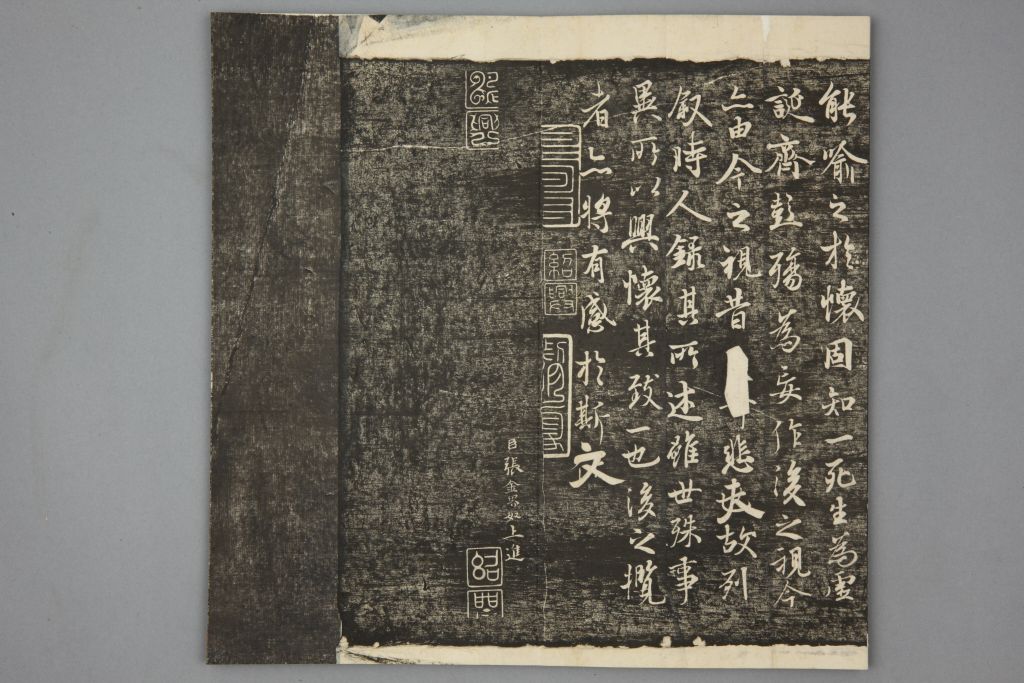 能喻之於懷固知一死生為虛
誕齊彭殤為妄作後之視今
亦由今之視昔 悲夫故列
叙時人錄其所述雖世殊事
異所以興懷其致一也後之攬
者亦將有感於斯文
臣張金界奴上進
紹興